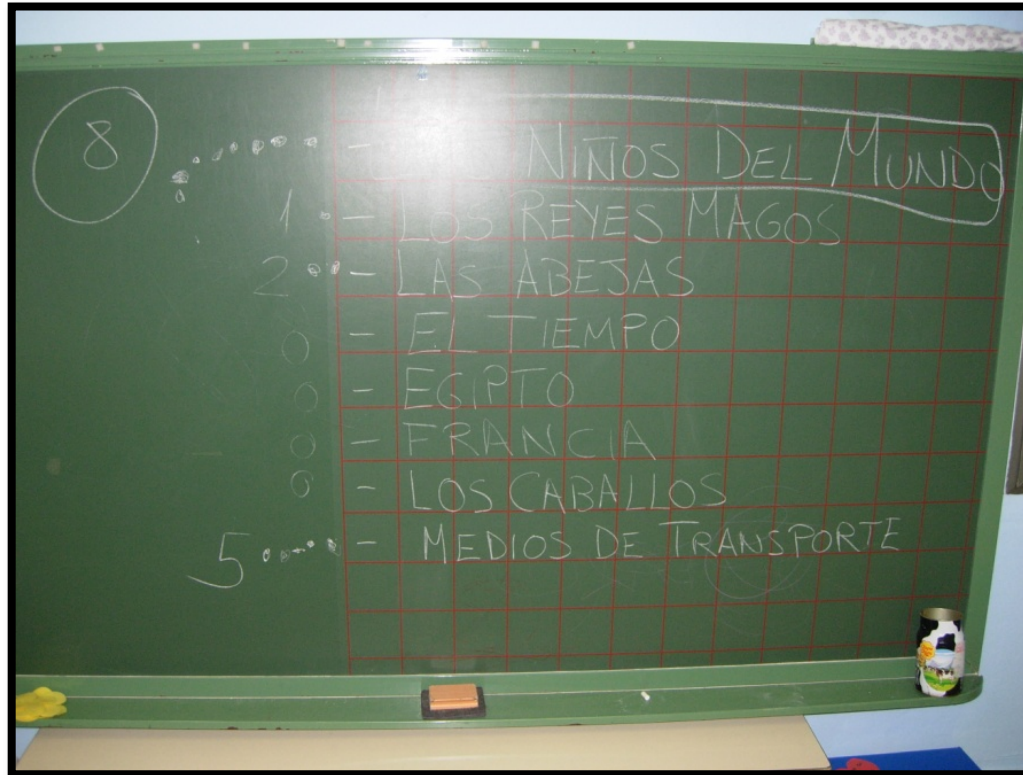 8 - NIÑOS DEL MUNDO
1 - LOS REYES MAGOS
2 - LAS ABEJAS
0 - EL TIEMPO
0 - EGIPTO
0 - FRANCIA
0 - LOS CABALLOS
5 - MEDIOS DE TRANSPORTE